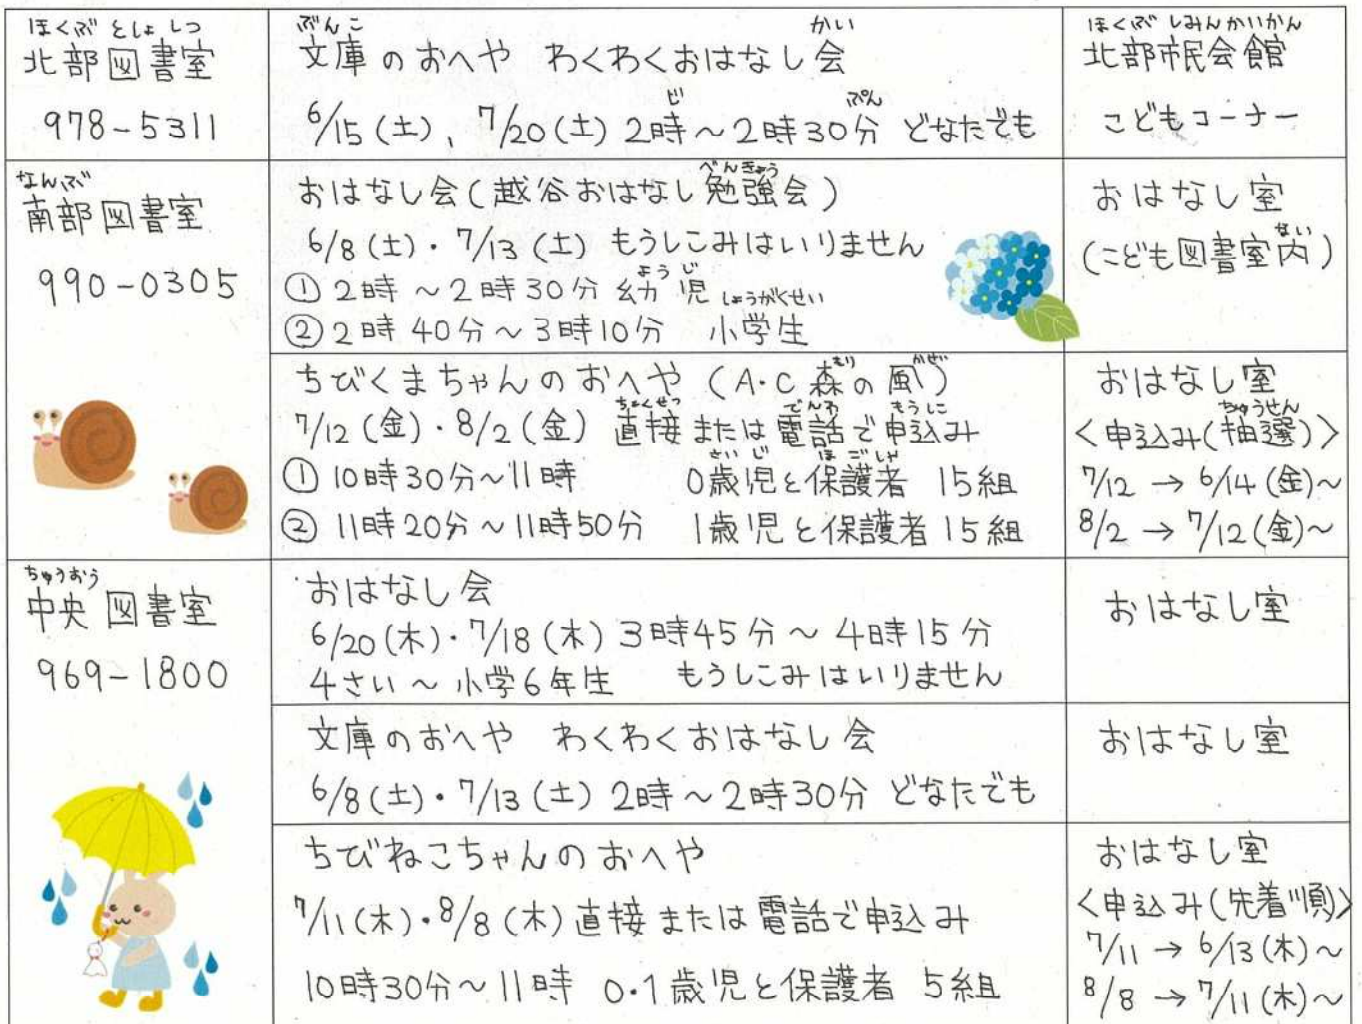 ほくぶ としょ しつ
北部図書室
978-5311
ぶんこ かい
文庫のおへや わくわくおはなし会
じ ぷん
6/15(土)、7/20(土) 2時～2時30分 どなたでも
ほくぶ しみんかいかん
北部市民会館
こどもコーナー
なんぶ
南部図書室
990-0305
べんきょう
おはなし会(越谷おはなし勉強会)
6/8(土)・7/13(土) もうしこみはいりません
ようじ
①2時～2時30分 幼児
しょうがくせい
②2時40分～3時10分 小学生
おはなし室
ない
(こども図書室内)
もり かぜ
ちびくまちゃんのおへや (A・C 森の風)
ちょくせつ でんわ もうしこ
7/12(金)・8/2(金) 直接または電話で申込み
さいじ ほごしゃ
①10時30分～11時 0歳児と保護者 15組
②11時20分～11時50分 1歳児と保護者 15組
おはなし室
ちゅうせん
<申込み(抽選)>
7/12 → 6/14(金)～
8/2 → 7/12(金)～
ちゅうおう
中央図書室
969-1800
おはなし会
6/20(木)・7/18(木) 3時45分～4時15分
4さい～小学6年生 もうしこみはいりません
おはなし室
文庫のおへや わくわくおはなし会
6/8(土)・7/13(土) 2時～2時30分 どなたでも
おはなし室
ちびねこちゃんのおへや
7/11(木)・8/8(木) 直接または電話で申込み
10時30分～11時 0・1歳児と保護者 5組
おはなし室
<申込み(先着順)>
7/11 → 6/13(木)～
8/8 → 7/11(木)～